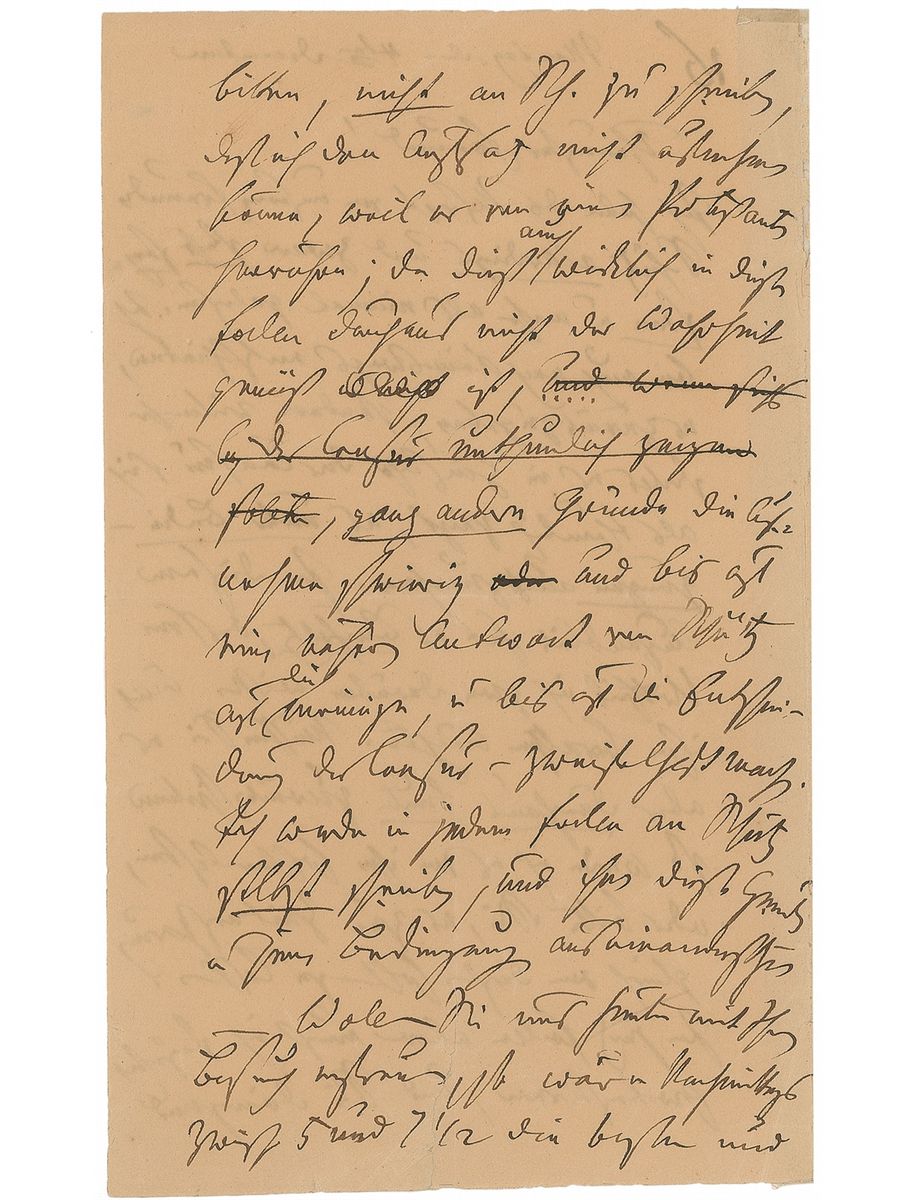 bitten, nicht an Sch. zu schreiben,
daß ich den Aufsatz nicht aufnehmen
könne, weil er von einem Protestanten
herrühre; da dieß auch wirklich in diesem
Fallen durchaus nicht der Wahrheit
gemäß ist, und wenn sichs
bey der Censur unthunlich zeigen
sollte, ganz andere Gründe die Auf-
nahme schwierig oder und bis auf
eine nähere Antwort von Schütz
auf die meinige, u bis auf die Entschei-
dung der Censur – zweifelhaft mach.
Ich werde in jedem Fallen an Schütz
selbst schreiben, und ihm diese Gründe
u jene Bedingung auseinandersetzen
Wollen Sie uns heute mit Ihrem
Besuch erfreuen, so wären Nachmittags
zwisch 5 und 7 1/2 die besten und